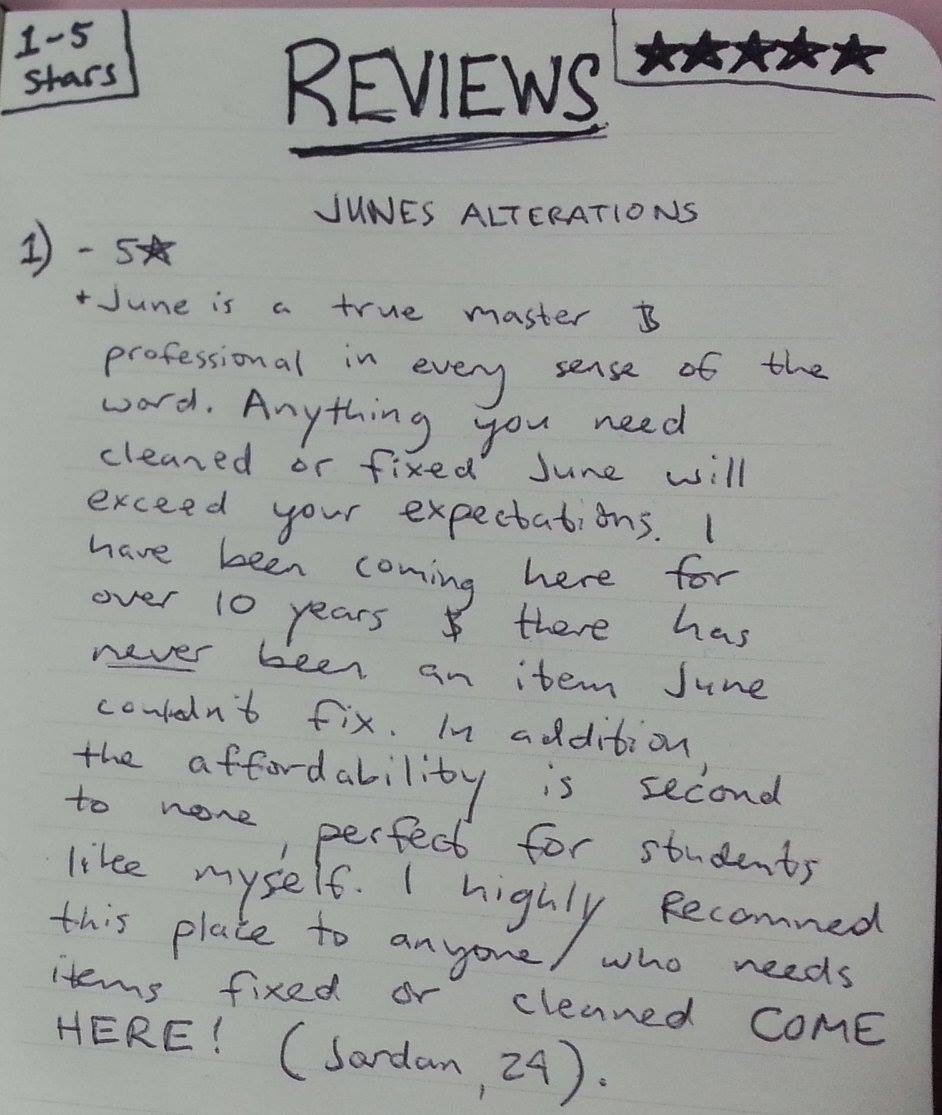 1-5
Stars
REVIEWS
★★★★★
JUNES ALTERATIONS
1) - 5★
+ June is a true master &
professional in every sense of the
word. Anything you need
cleaned or fixed June will
exceed your expectations. I
have been coming here for
over 10 years & there has
never been an item June
couldn't fix. In addition,
the affordability is second
to none, perfect for students
like myself. I highly Recomned
this place to anyone/ who needs
items fixed or cleaned COME
HERE! (Jordan, 24).